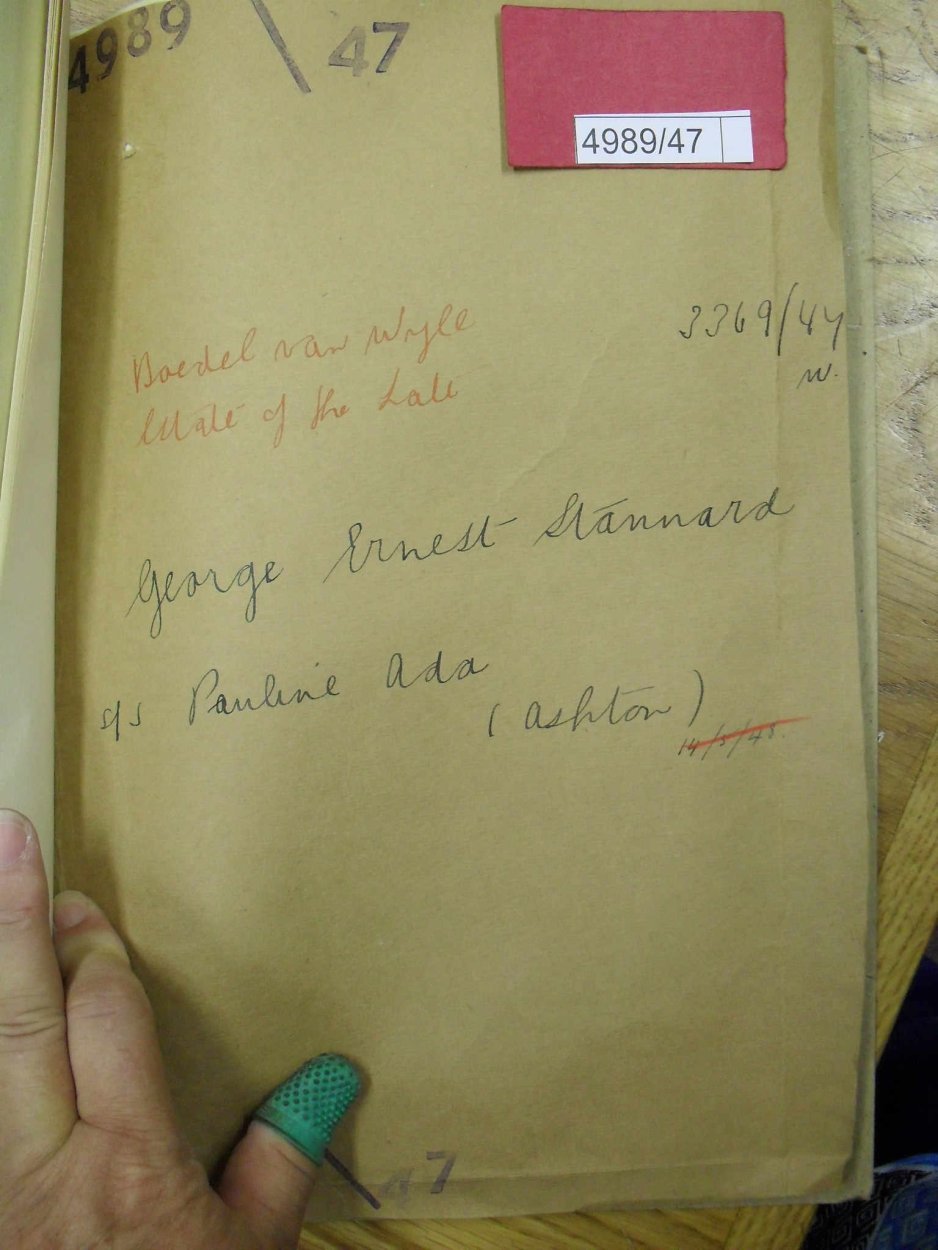 4989 \ 47
4989/47
3369/47
w.
Boedel van Wyle
Estate of the Late
George Ernest Stannard
s/s Pauline Ada
(Ashton)
14/5/48.
\ 47